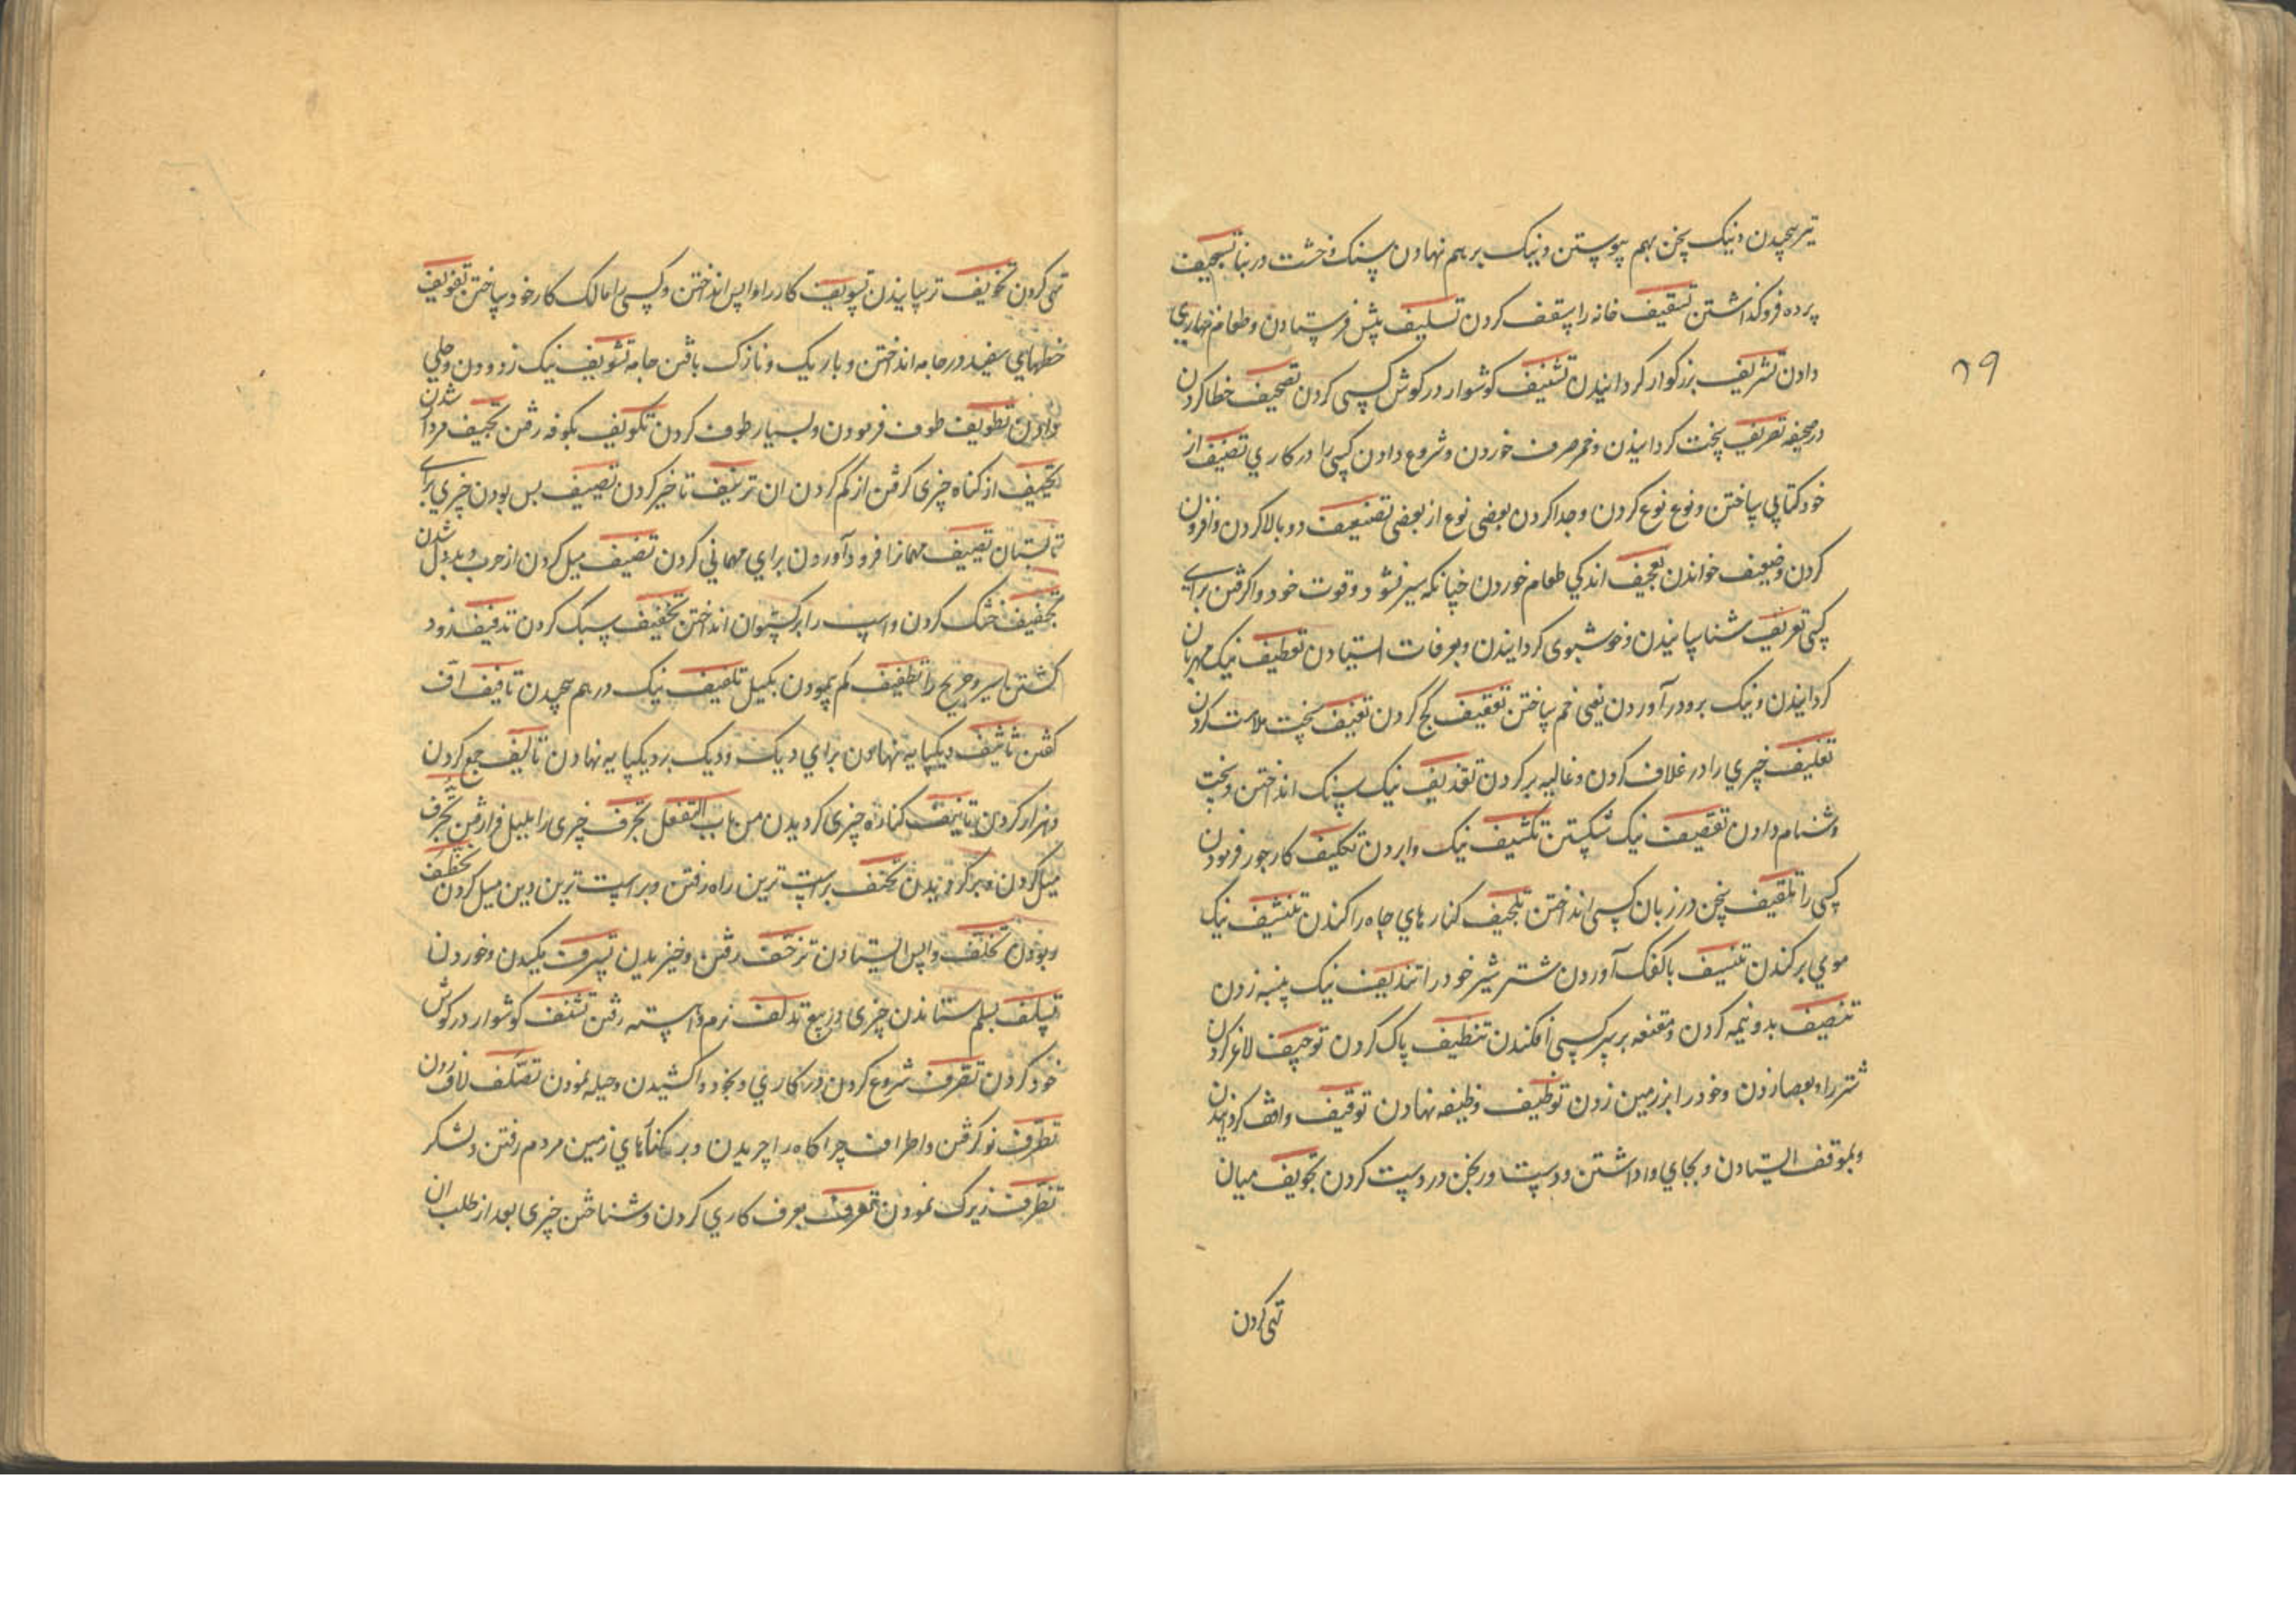 تیر پیچیدن و نیک سخن بهم پیوستن و نیک بر هم نهادن سنک و خشت در بنا تسجیف
پرده فروکذاشتن تسقیف خانه را سقف کردن تسلیف پیش فرستادن و طعام نهاری
دادن تشریف بزرکوار کردانیدن تشنیف کوشوار در کوش کسی کردن تصحیف خطا کردن
در صحیفه تصریف سخت کردانیدن و خمر صرف خوردن و شروع دادن کسی را در کاری تصنیف از
خود کتابی ساختن و نوع نوع کردن و جدا کردن بعضی نوع از بعضی تضعیف دو بالا کردن و افزون
کردن و ضعیف خواندن تعجیف اندکی طعام خوردن چنانکه سیر نشود و قوت خود وا کرفتن برای
کسی تعریف شناسانیدن و خوشبوی کردانیدن و بعرفات استادن تعطیف نیک مهربان
کردانیدن و نیک بر و در آوردن یعنی خم ساختن تعقیف کج کردن تعنیف سخت ملامت کردن
تغلیف چیزی را در غلاف کردن و غالیه بر کردن تقذیف نیک سنک انداختن و سخت
دشنام دادن تقصیف نیک شکستن تکشیف نیک وا بردن تکلیف کار جور فرمودن
کسی را تلقیف سخن در زبان کسی انداختن تلجیف کنارهای چاه را کندن تنشیف نیک
موی بر کندن تنسیف با کفک آوردن شتر شیر خود را تندیف نیک پنبه زدن
تنصیف بدو نیمه کردن و مقنعه بر سر کسی افکندن تنظیف پاک کردن توجیف لاغر کردن
شتر را و بعصا زدن و خود را بر زمین زدن توظیف وظیفه نهادن توقیف واقف کردانیدن
و بموقف استادن و بجای واداشتن و دست ورنجن در دست کردن تجویف میان
تهی کردن
۶۹
تهی کردن تخویف ترسانیدن تسویف کار را واپس انداختن و کسی را مالک کار خود ساختن تفویف
خطهای سفید در جامه انداختن و باریک و نازک بافتن جامه تشویف نیک زدودن و جلی
دادن تطویف طوف فرمودن و بسیار طوف کردن تکویف بکوفه رفتن تجییف مردار شدن
تحییف از کناه چیزی کرفتن از کم کردن ان تریییف تاخیر کردن تصییف بس بودن چیزی برای
تابستان تضییف مهمانرا فرود آوردن برای مهمانی کردن تضییف میل کردن از حرب و بددل شدن
تجفیف خشک کردن و اسپ را برکستوان انداختن تخفیف سبک کردن تدفیف زود
کشتن اسیر و جریح را تطفیف کم پیمودن بکیل تلفیف نیک در هم پیچیدن تافیف اف
کفتن تاثیف دیکپایه نهادن برای دیک و دیک بر دیکپایه نهادن تالیف جمع کردن
و هزار کردن تانیف کناره چیزی کردیدن من باب التفعل تجرف چیزی را ببیل فرا رفتن تحرف
میل کردن و بر کردیدن تحنف براست ترین راه رفتن و براست ترین دین میل کردن تخطف
ربودن تخلف واپس استادن تزحف رفتن و خیزیدن ترشف مکیدن و خوردن
تسلف بسلم ستاندن چیزی در بیع تدلف نرم و آهسته رفتن تشنف کوشوار در کوش
خود کردن تصرف شروع کردن در کاری و بخود واکشیدن و حیله نمودن تصلف لاف زدن
تطرف نو کرفتن و اطراف چراکاه را چریدن و بر کنارهای زمین مردم رفتن و لشکر
تظرف زیرک نمودن تعرف بعرف کاری کردن و شناختن چیزی بعد از طلب ان